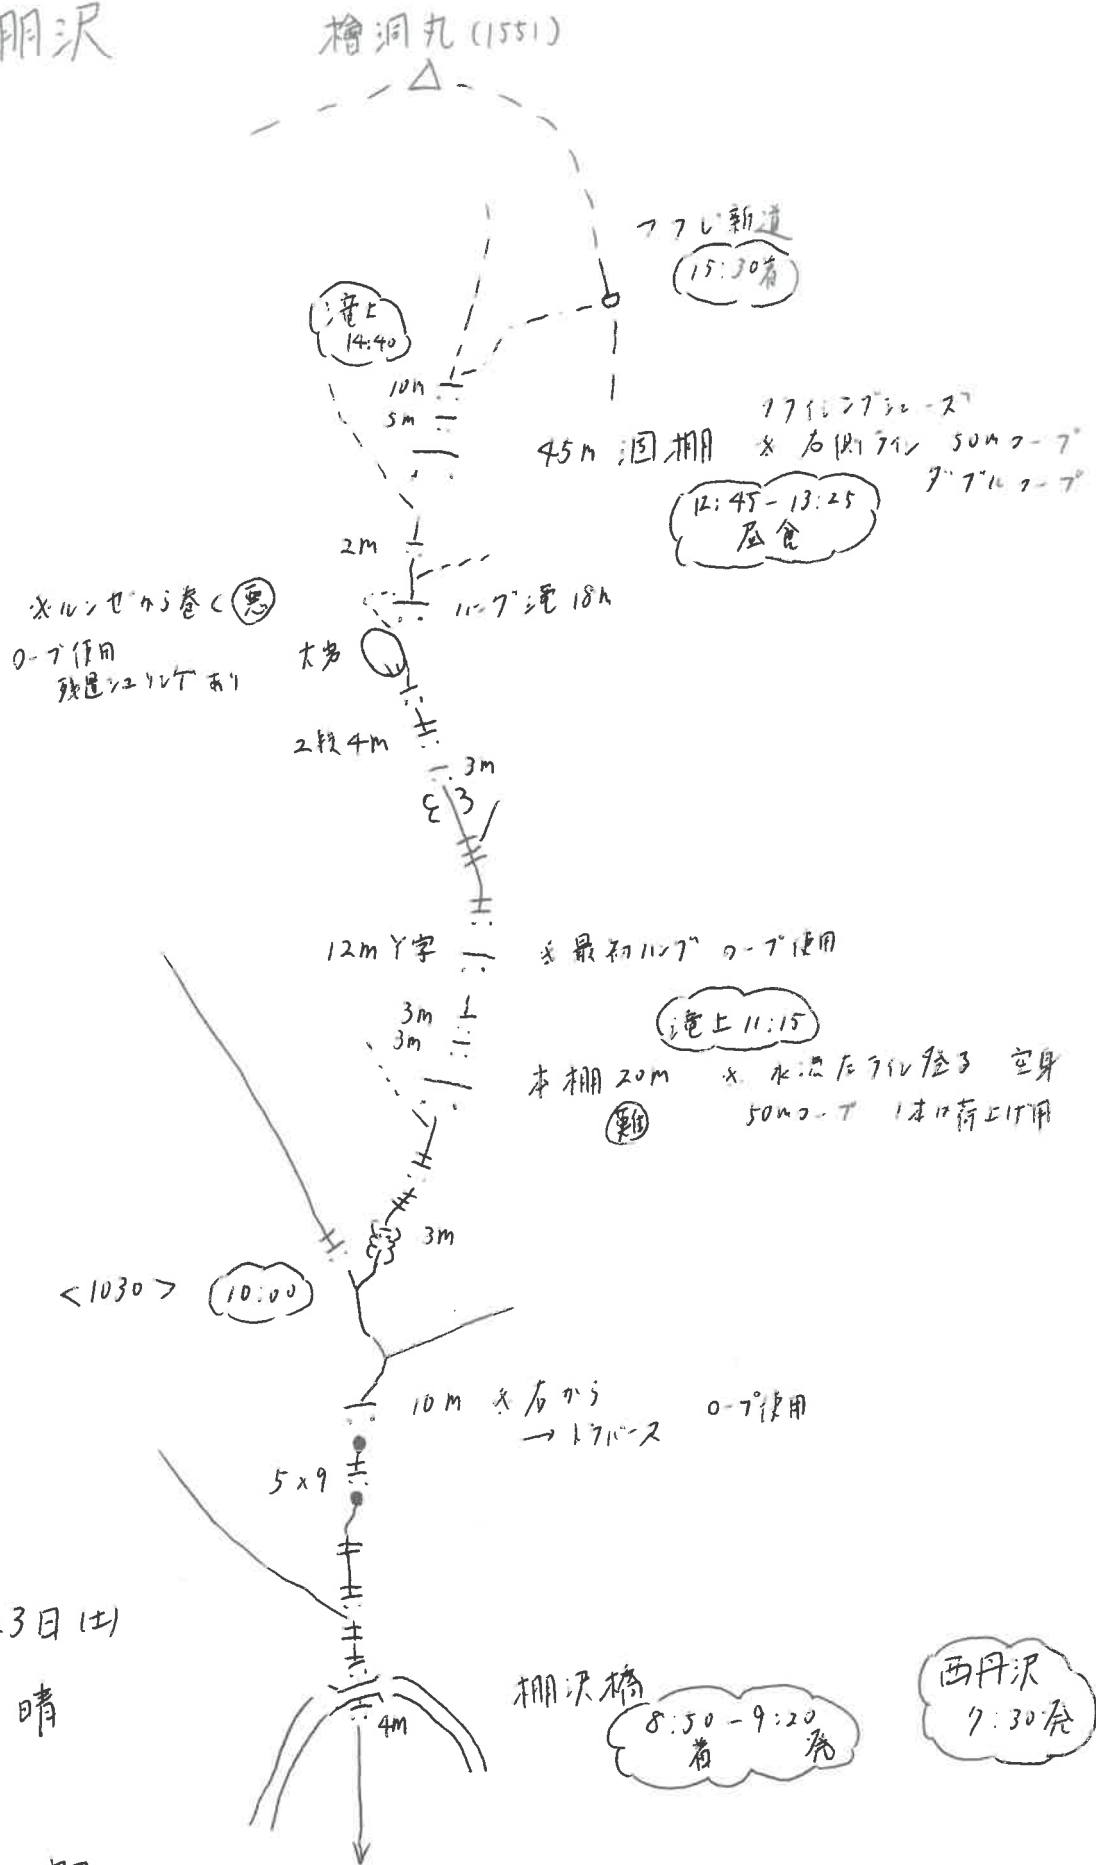 棚沢
檜洞丸(1551)
ツツジ新道
15:30着
滝上
14:40
10m
5m
45m 涸棚
※右側ライン 50mロープ
ダブルロープ
12:45-13:25
昼食
2m
ハング滝 18m
※ルンゼから巻く 悪
ロープ使用
残置シュリンゲあり
大岩
2段4m
3m
12m Y字
※最初ハング ロープ使用
3m
3m
滝上 11:15
本棚 20m ※ 水流左ライン登る 空身
難
50mロープ 1本は荷上げ用
3m
<1030>
10:00
10m ※右から
→トラバース
ロープ使用
5×9
3日(土)
晴
4m
棚沢橋
8:50-9:20
着 発
西丹沢
7:30発